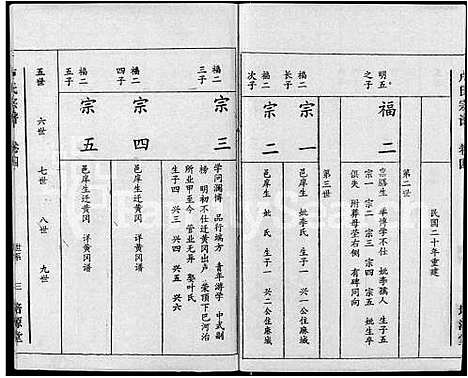 民国二十年重建
第二世
明五之子
福二
生子五 宗一 宗二 宗三 宗四 宗五 姚生卒
俱失 附葬母茔右侧 有碑同向
第三世
福二长子
宗一
邑庠生 妣李氏 生子一 兴一公住麻城
福二次子
宗二
邑庠生 妣氏 生子一 兴二公住麻城
福二三子
宗三
学问渊博 品行端方 青年游学 中式副
榜 明初不仕迁黄冈出卢 荣顶下巴河治
所业甲至今 管业无异 娶叶氏
生子四 兴三 兴四 兴五 兴六
福二四子
宗四
邑庠生迁黄冈 详黄冈谱
福二五子
宗五
邑庠生迁黄冈 详黄冈谱
五世 六世 七世 八世 九世
氏宗谱 卷四
世系 三